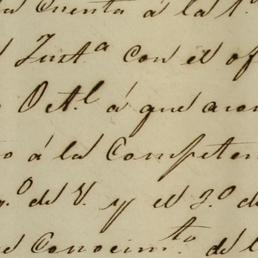 la Cuenta á la 1ª
Justª con el of
Octᵉ á que acom
o á la Competen
º de V. y el 3º de
e Conocimᵗᵒ de l